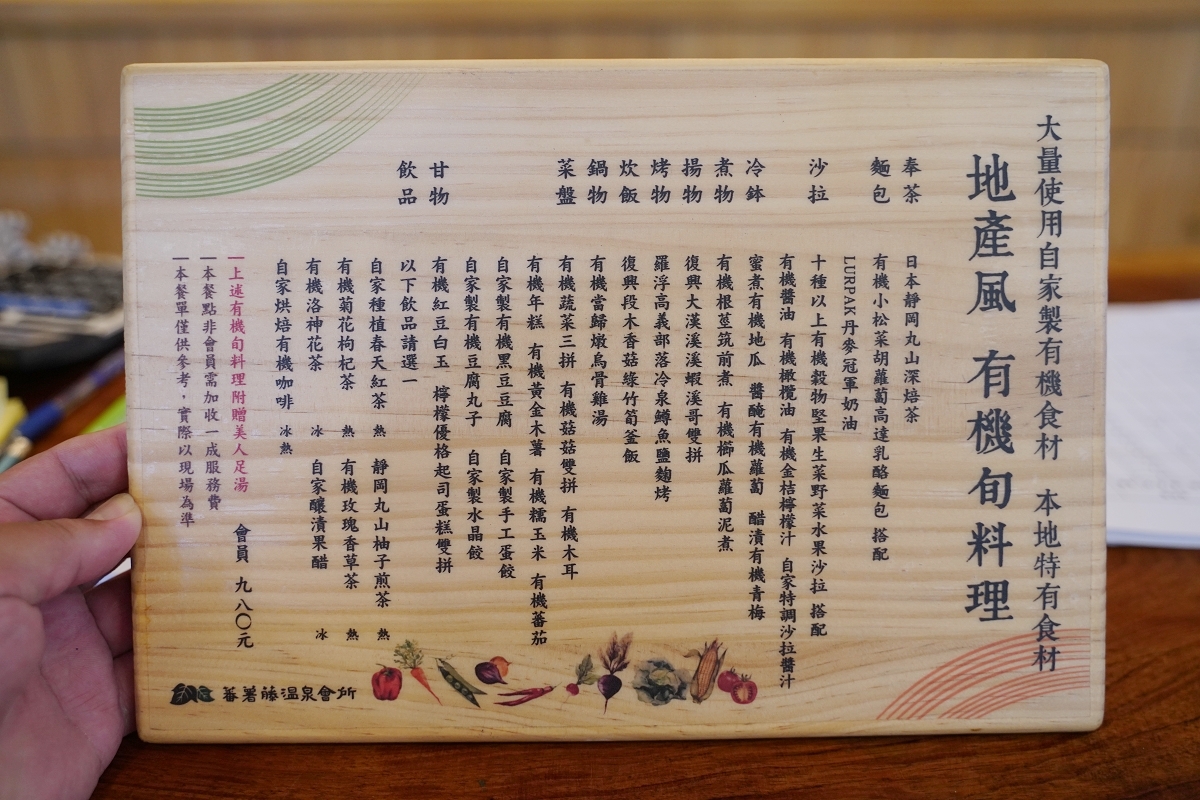 大量使用自家製有機食材 本地特有食材
地產風 有機旬料理
奉茶 日本靜岡丸山深焙茶
麵包 有機小松菜胡蘿蔔高達乳酪麵包 搭配
LURPAK丹麥冠軍奶油
沙拉 十種以上有機穀物堅果生菜野菜水果沙拉 搭配
有機醬油 有機橄欖油 有機金桔檸檬汁 自家特調沙拉醬汁
冷鉢 蜜煮有機地瓜 醬醃有機蘿蔔 醋漬有機青梅
煮物 有機根莖筑前煮 有機櫛瓜蘿蔔泥煮
揚物 復興大漢溪溪蝦溪哥雙拼
烤物 羅浮高義部落冷泉鱒魚鹽麴烤
炊飯 復興段木香菇綠竹筍釜飯
鍋物 有機當歸燉烏骨雞湯
菜盤 有機蔬菜三拼 有機菇菇雙拼 有機木耳
有機年糕 有機黃金木薯 有機糯玉米 有機蕃茄
自家製有機黑豆豆腐 自家製手工蛋餃
自家製有機豆腐丸子 自家製水晶餃
甘物 有機紅豆白玉 檸檬優格起司蛋糕雙拼
飲品 以下飲品請選一
自家種植春天紅茶 熱 靜岡丸山柚子煎茶 熱
有機菊花枸杞茶 熱 有機玫瑰香草茶 熱
有機洛神花茶 冰 自家釀漬果醋 冰
自家烘焙有機咖啡 冰熱
|上述有機旬料理附贈美人足湯 會員 九八〇元
|本餐點非會員需加收一成服務費
|本餐單僅供參考，實際以現場為準
蕃薯藤溫泉會所